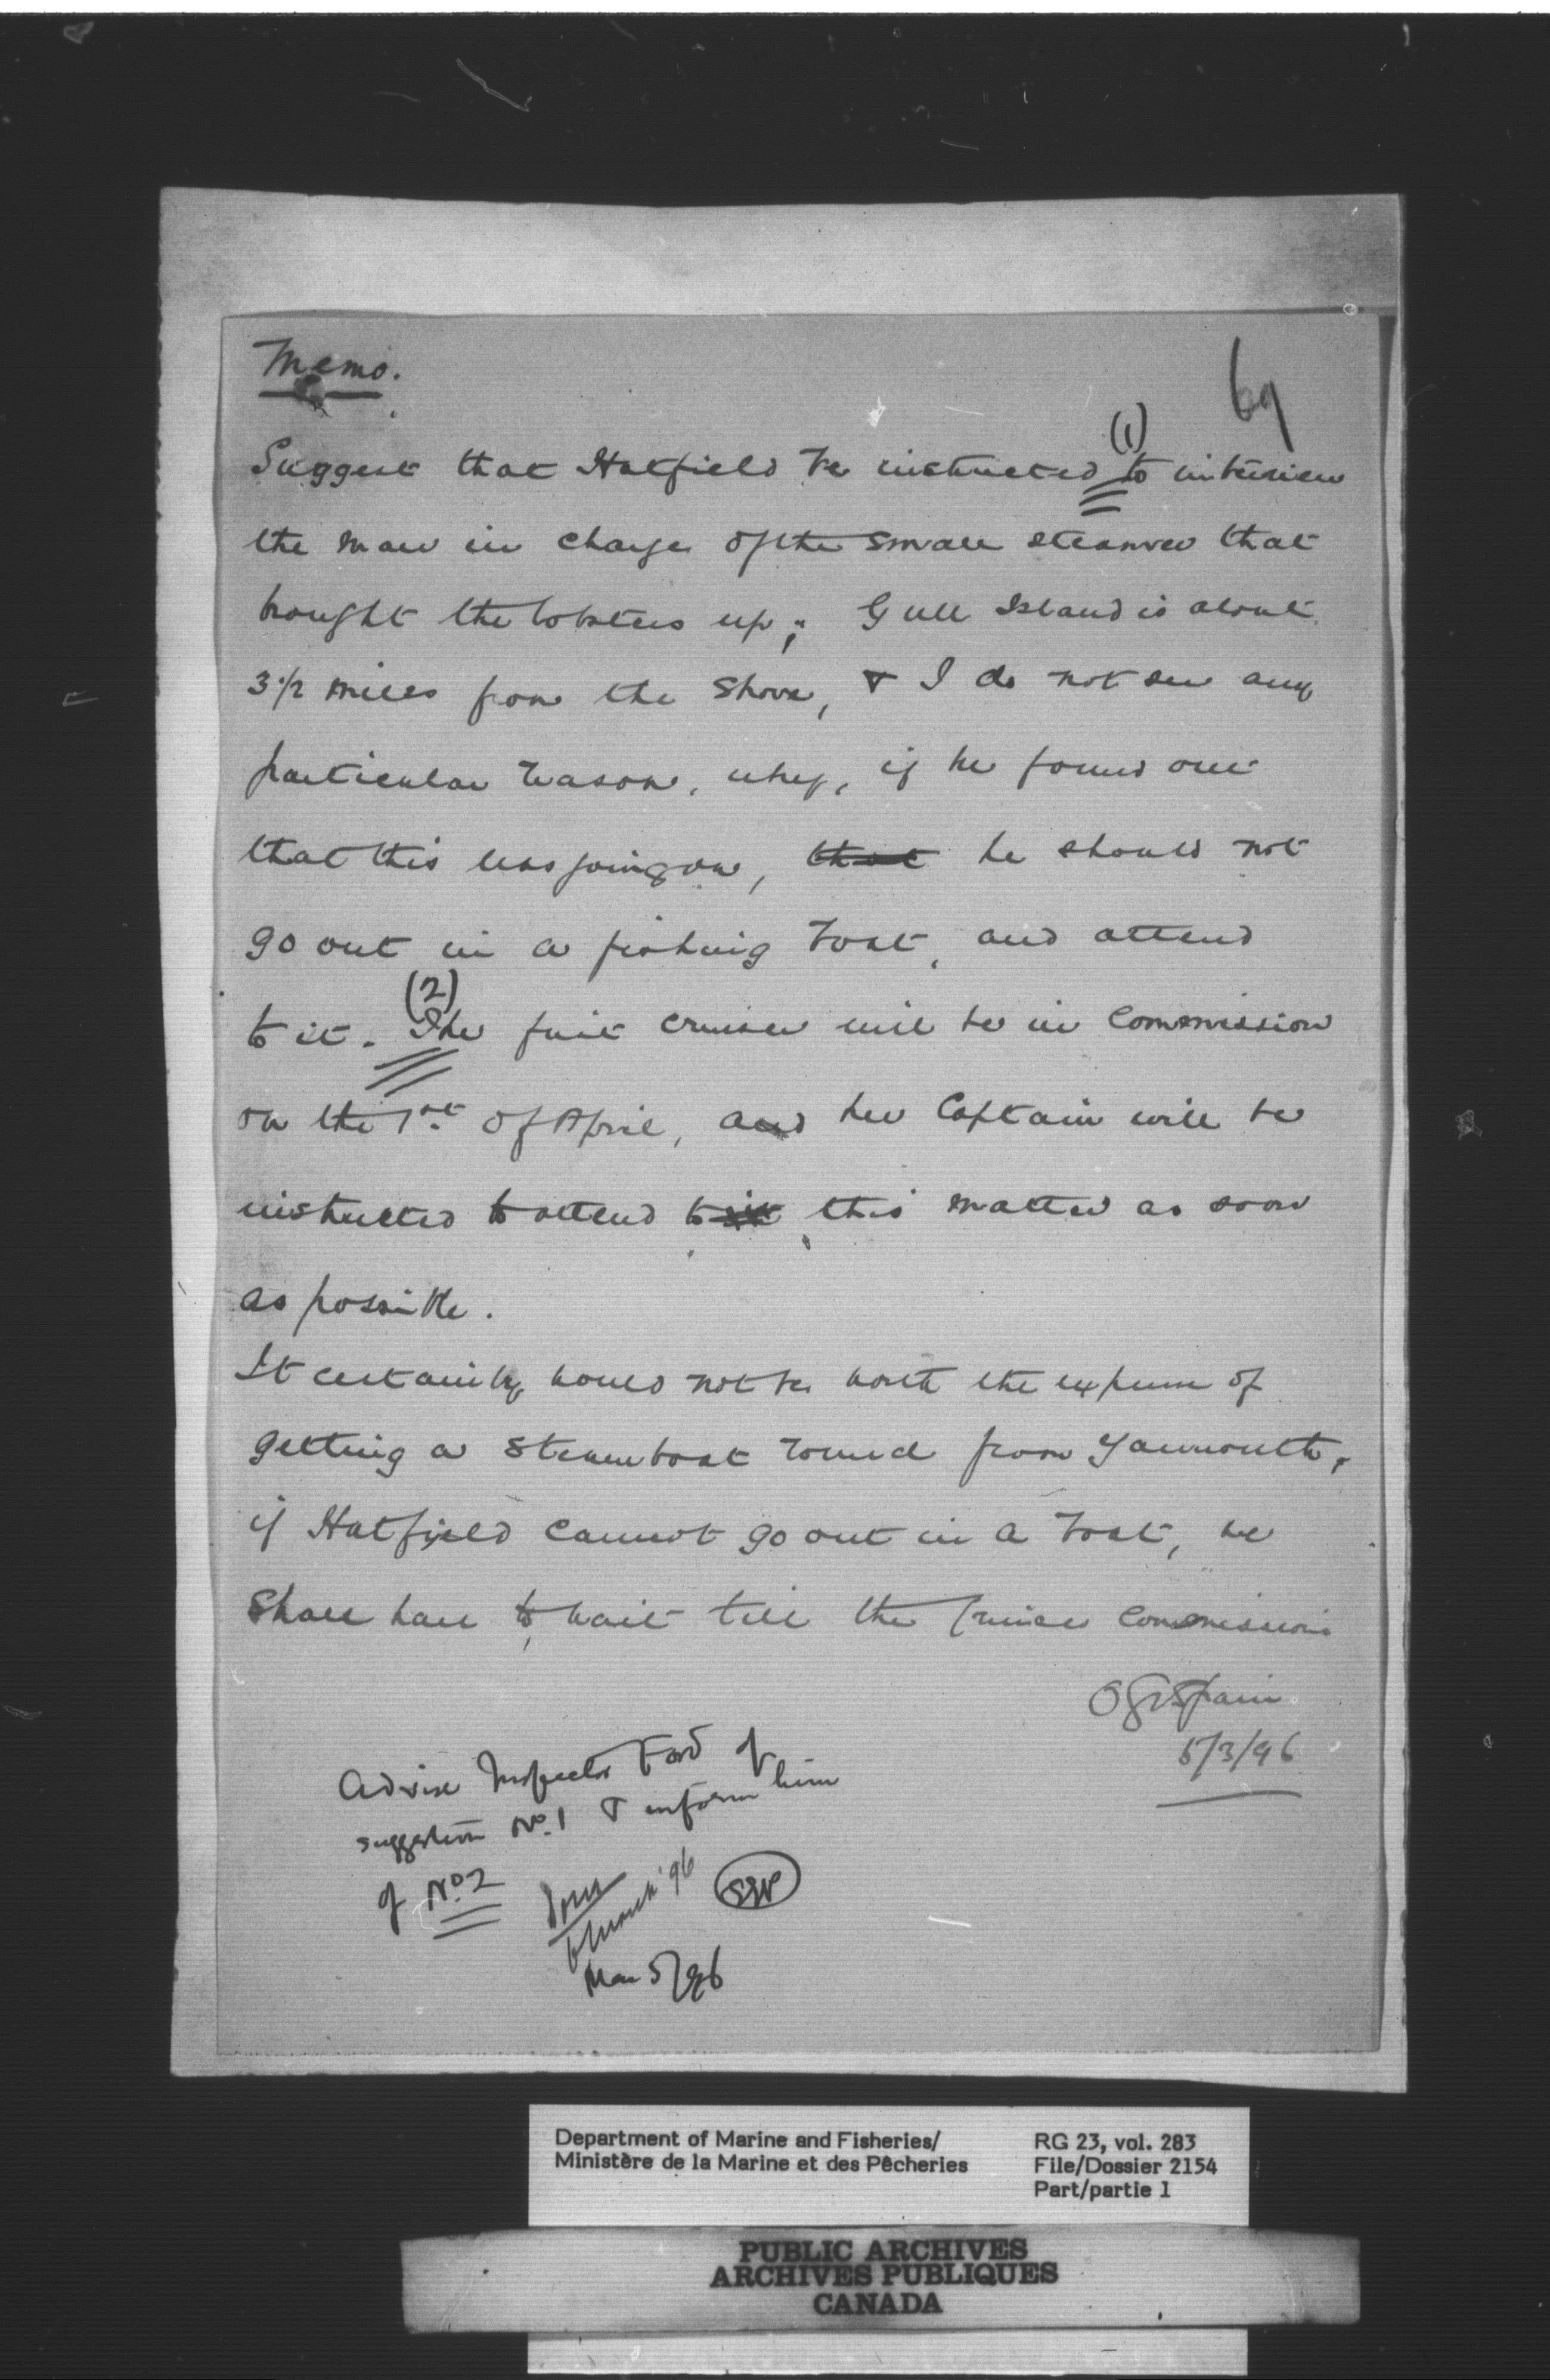 Memo.
69
(1)
Suggest that Hatfield be instructed to interview
the man in charge of the small steamer that
brought the lobsters up; Gull Island is about
3 1/2 miles from the shore, & I do not see any
particular reason, why, if he found out
that this was going on, that he should not
go out in a fishing boat, and attend
(2)
to it. The first cruiser will be in Commission
on the 1st of April, and her Captain will be
instructed to attend to it this matter as soon
as possible.
It certainly would not be worth the expense of
getting a steamboat round from Yarmouth,
if Hatfield cannot go out in a boat, we
shall have to wait till the Cruiser commissions
OGVSpain
5/3/96
Advise Inspector Ford of
suggestion No. 1 & inform him
of No. 2
Done
6 March '96
Mar 5/96
Department of Marine and Fisheries/
Ministère de la Marine et des Pêcheries
RG 23, vol. 283
File/Dossier 2154
Part/partie 1
PUBLIC ARCHIVES
ARCHIVES PUBLIQUES
CANADA